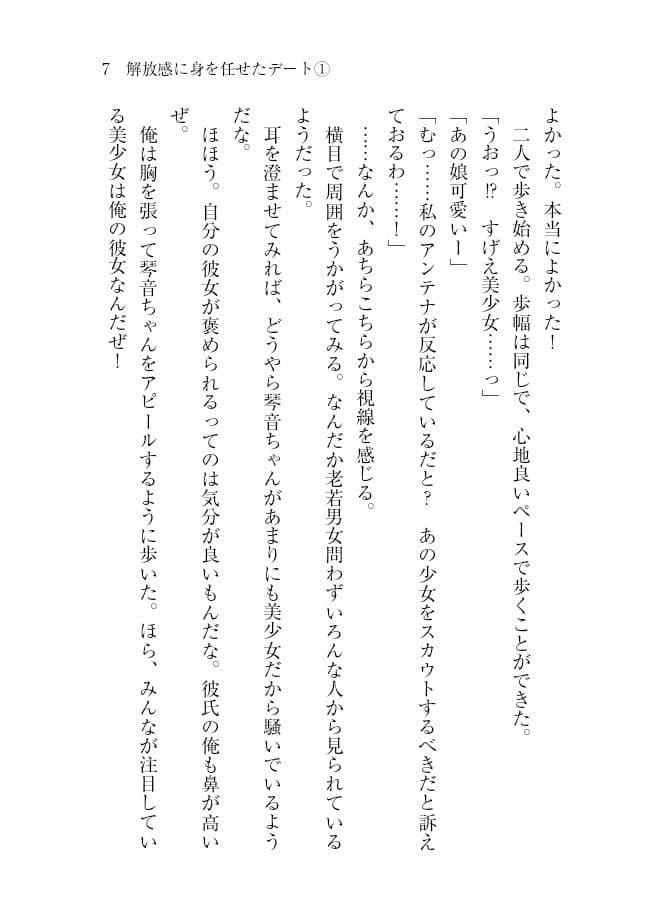 7　解放感に身を任せたデート①
よかった。本当によかった！
　二人で歩き始める。歩幅は同じで、心地良いペースで歩くことができた。
「うおっ!?　すげえ美少女……っ」
「あの娘可愛いー」
「むっ……私のアンテナが反応しているだと？　あの少女をスカウトするべきだと訴え
ておるわ……！」
　……なんか、あちらこちらから視線を感じる。
　横目で周囲をうかがってみる。なんだか老若男女問わずいろんな人から見られている
ようだった。
　耳を澄ませてみれば、どうやら琴音ちゃんがあまりにも美少女だから騒いでいるよう
だな。
　ほほう。自分の彼女が褒められるってのは気分が良いもんだな。彼氏の俺も鼻が高い
ぜ。
　俺は胸を張って琴音ちゃんをアピールするように歩いた。ほら、みんなが注目してい
る美少女は俺の彼女なんだぜ！